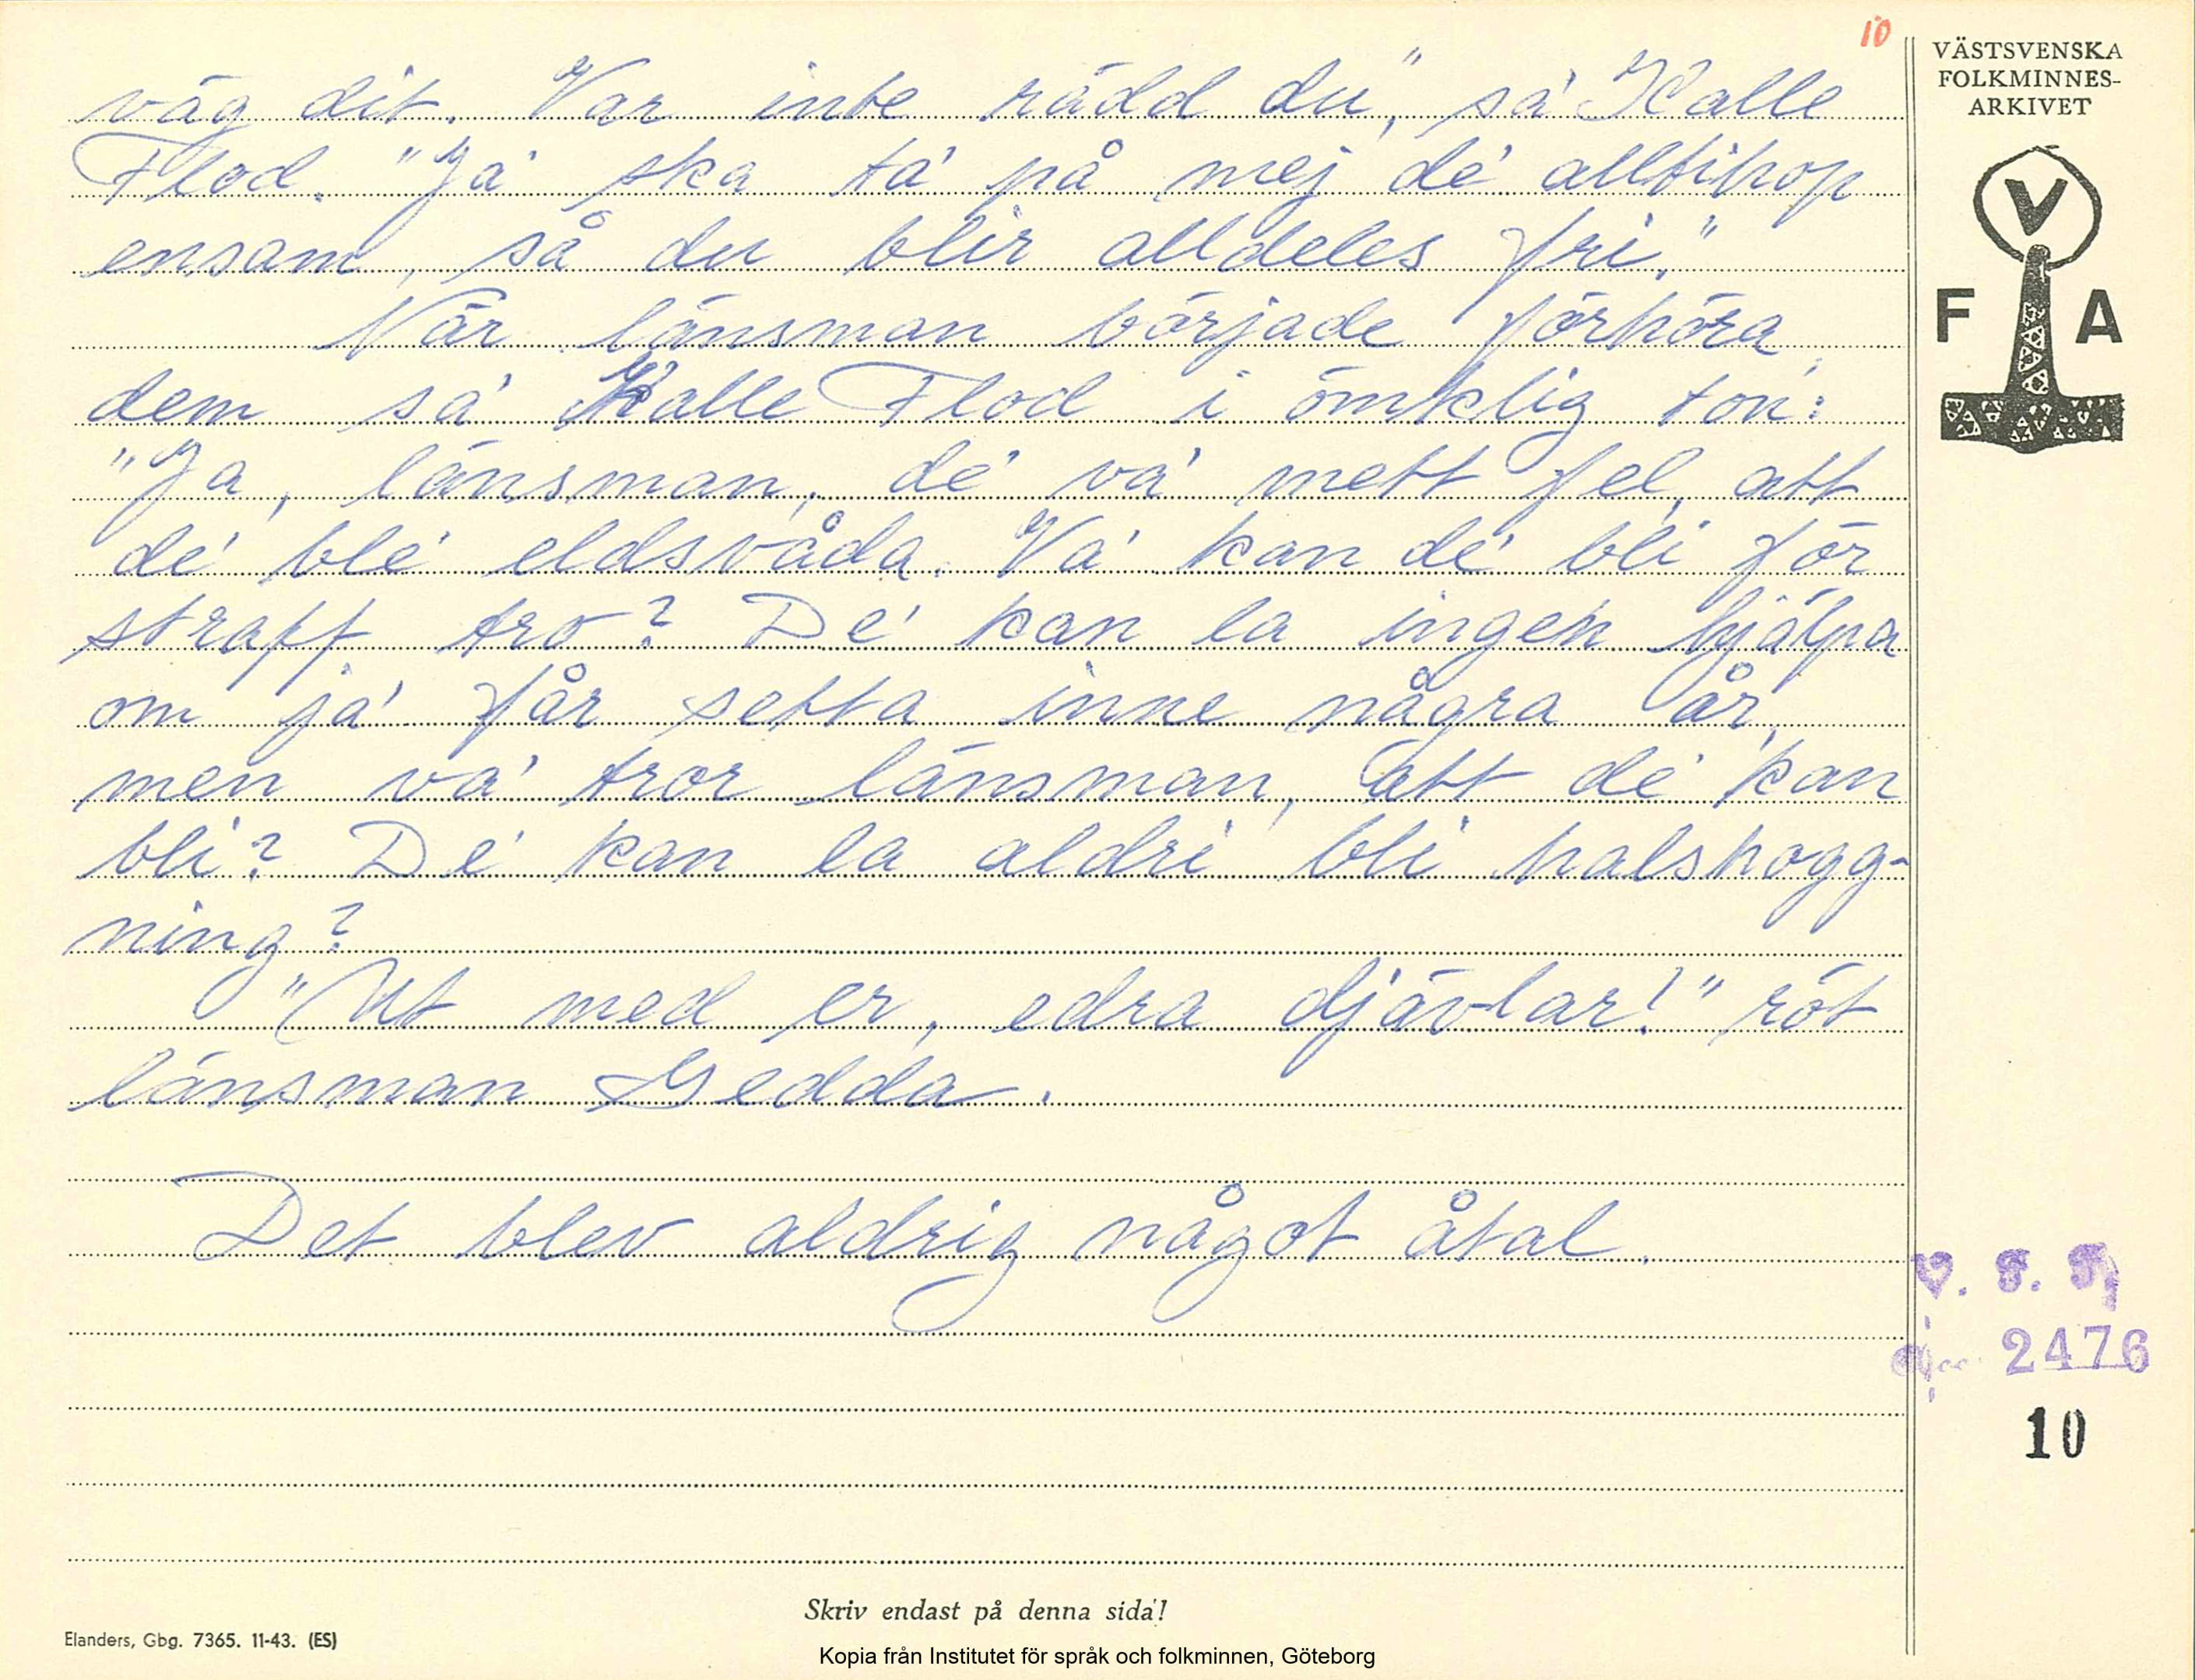 10
väg dit. Var inte rädd du", sa' Kalle
Flod. "Ja' ska ta' på mej de' alltihop
ensam, så du blir alldeles fri."
När länsman började förhöra
dem sa' Kalle Flod i ömklig ton:
"Ja, länsman, de' va' mett fel, att
de' ble' eldsvåda. Va' kan de' bli för
straff tro? De' kan la ingen hjälpa
om ja' får setta inne några år,
men va' tror länsman, att de' kan
bli? De' kan la aldri' bli halshogg-
ning?
"Ut med er, edra djävlar!" röt
länsman Gedda.
Det blev aldrig något åtal.
VÄSTSVENSKA
FOLKMINNES-
ARKIVET
V
F A
V. F. F.
Acc. 2476
10
Skriv endast på denna sida!
Elanders, Gbg. 7365. 11-43. (ES)
Kopia från Institutet för språk och folkminnen, Göteborg